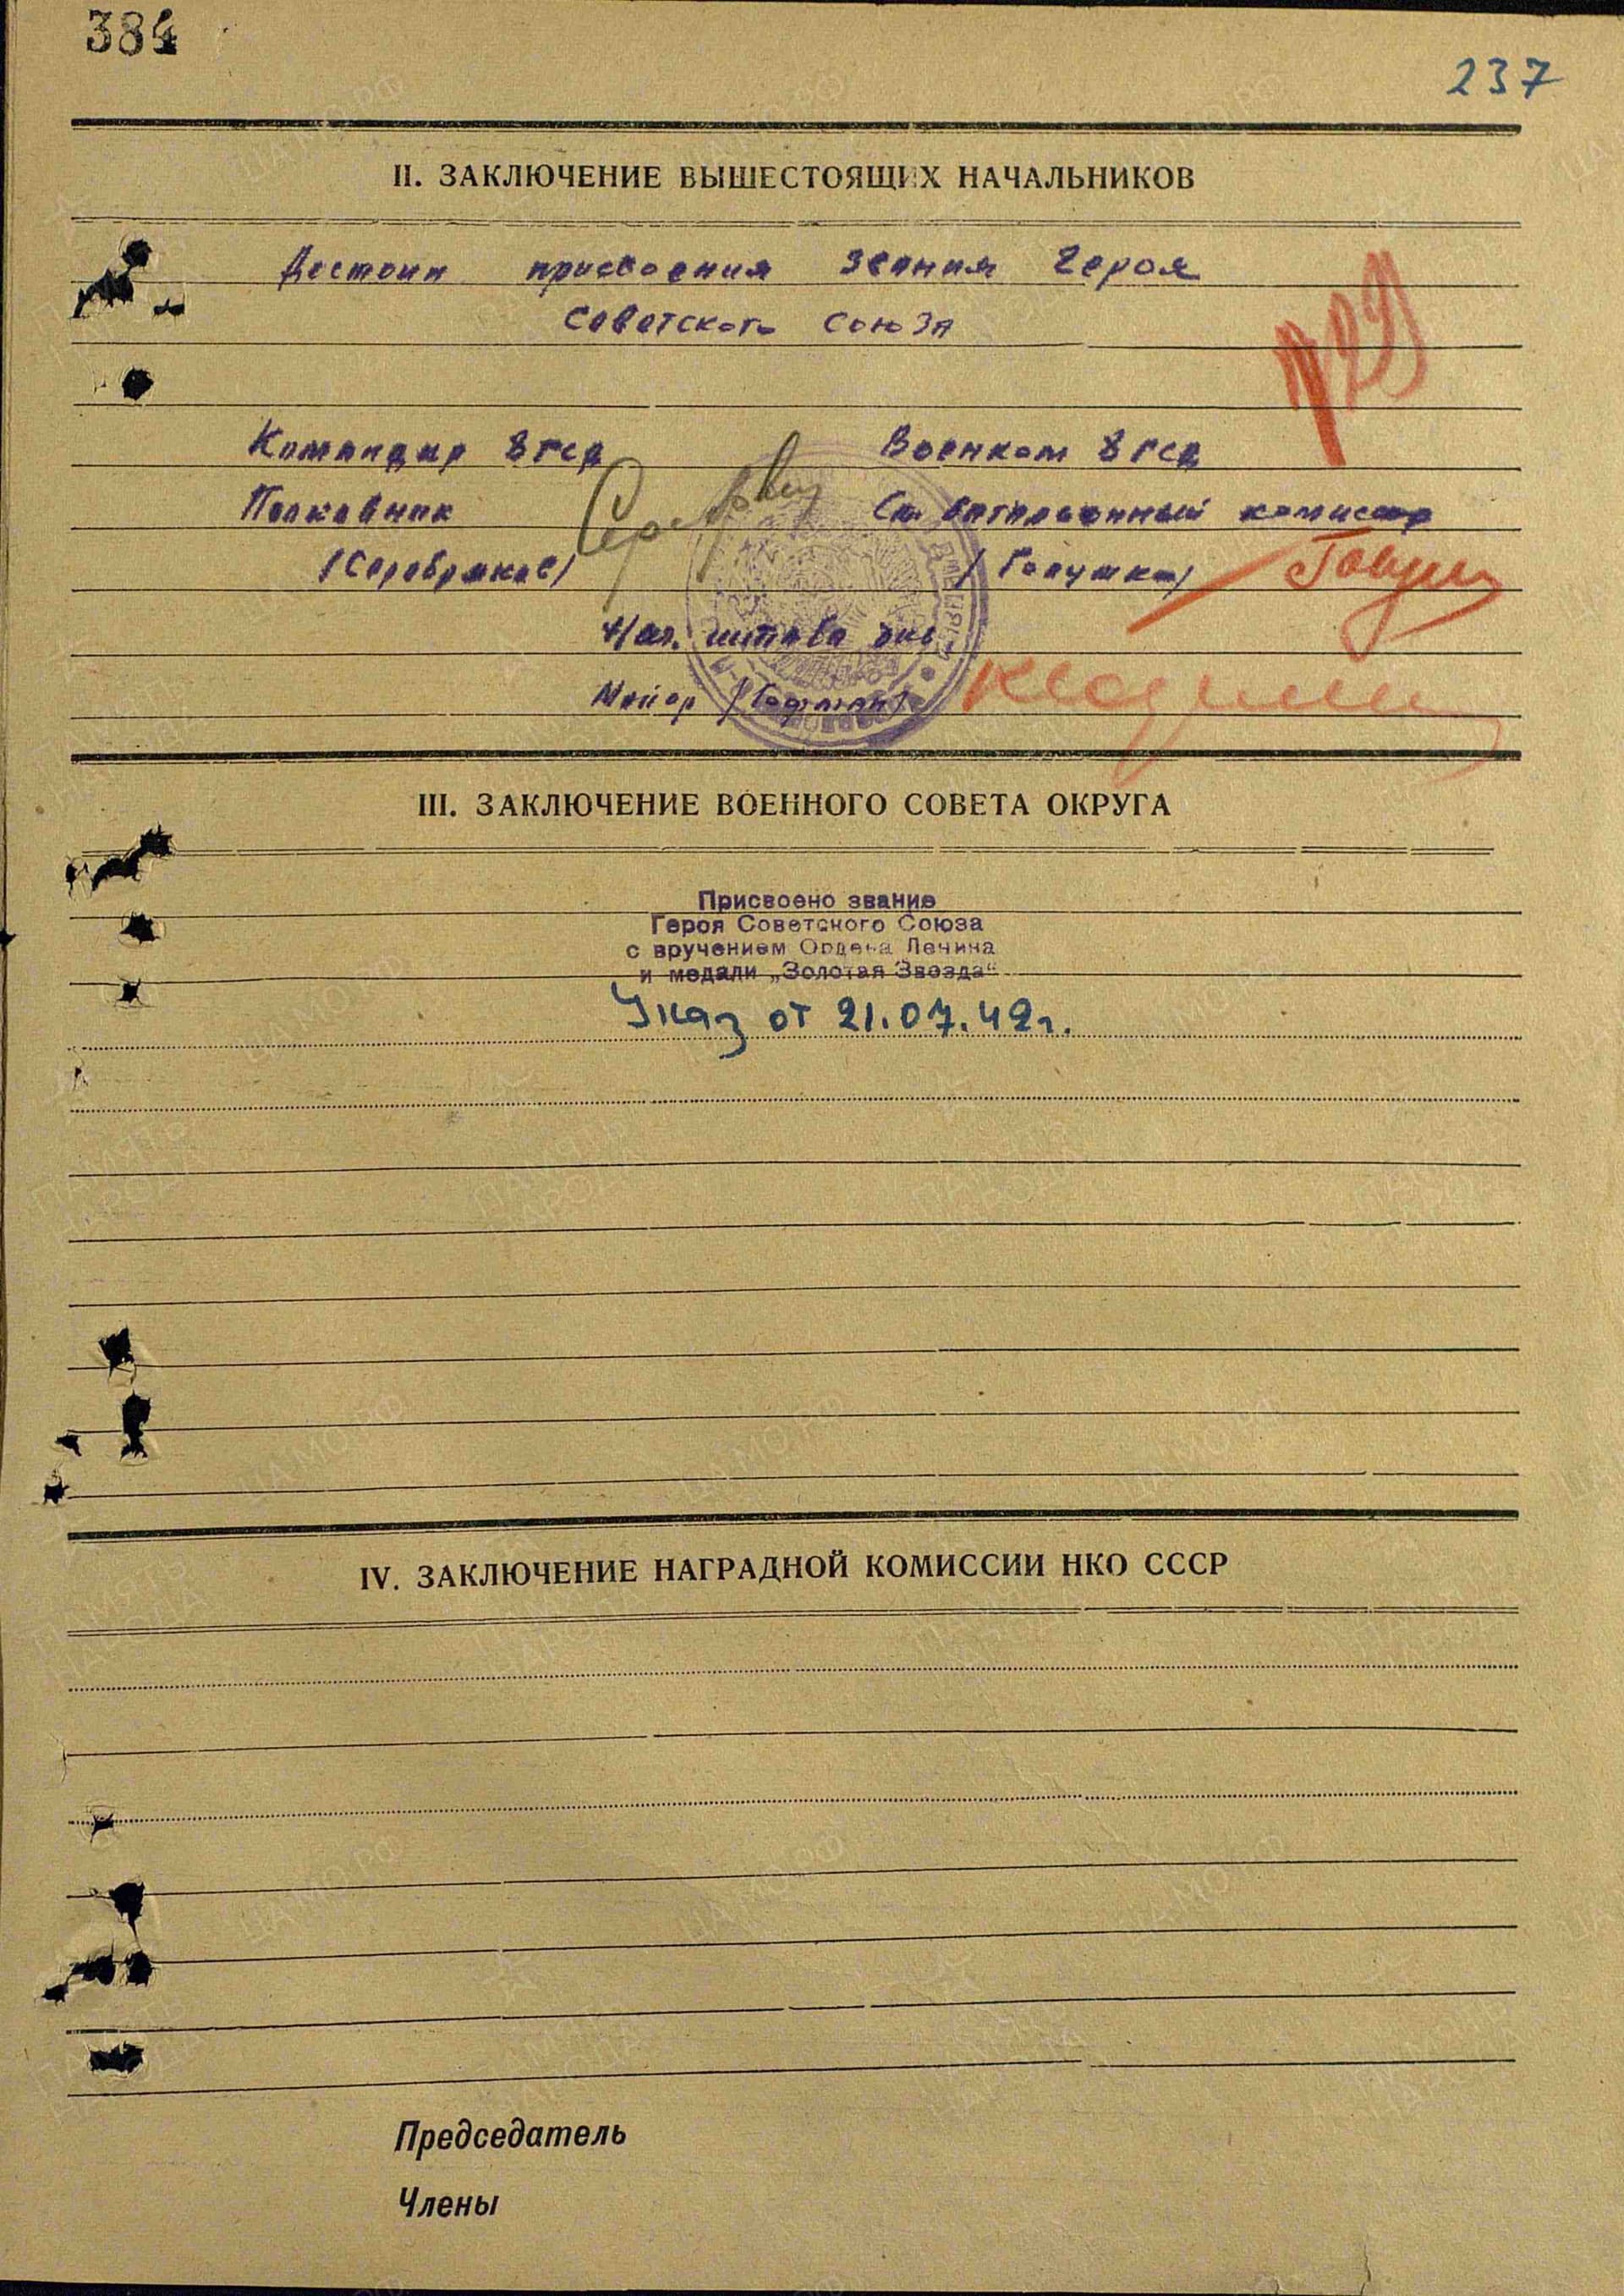 384
237
II. ЗАКЛЮЧЕНИЕ ВЫШЕСТОЯЩИХ НАЧАЛЬНИКОВ
Достоин присвоения звания Героя
Советского Союза
Командир 8 гсд Военком 8 гсд
Полковник Ст. батальонный комиссар
/Серебряков/ /Галушко/
Нач. штаба див.
Майор /Гофман/
III. ЗАКЛЮЧЕНИЕ ВОЕННОГО СОВЕТА ОКРУГА
Присвоено звание
Героя Советского Союза
с вручением Ордена Ленина
и медали „Золотая Звезда“
Указ от 21.07.42г.
IV. ЗАКЛЮЧЕНИЕ НАГРАДНОЙ КОМИССИИ НКО СССР
Председатель
Члены